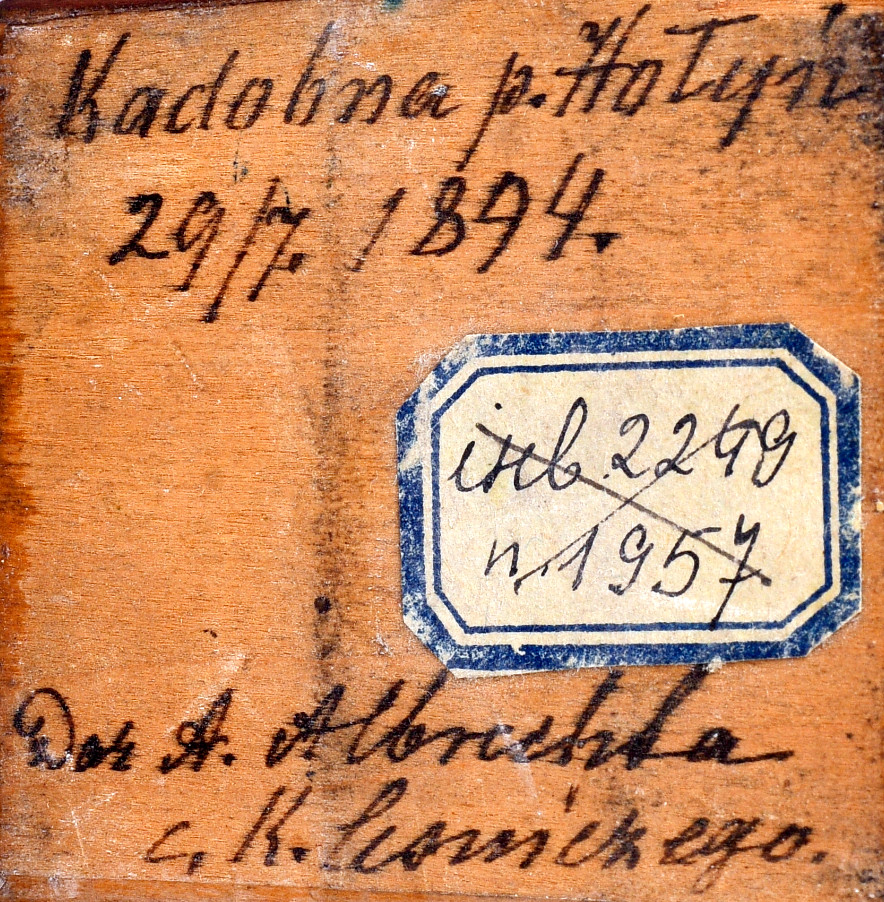 Kadobna p. Hołyń
29/7. 1894.
inb. 2249
n. 1957
Dar A. Albrechta
c. K. lesniczego.